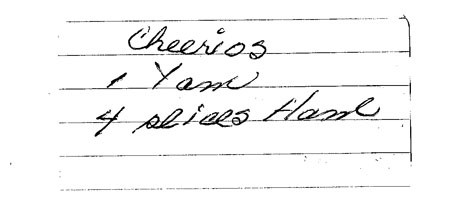 Cheerios
1 Yam
4 slices Ham